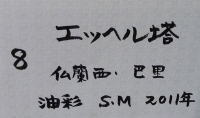 エッヘル塔
8
仏蘭西. 巴里
油彩 S.M 2011年